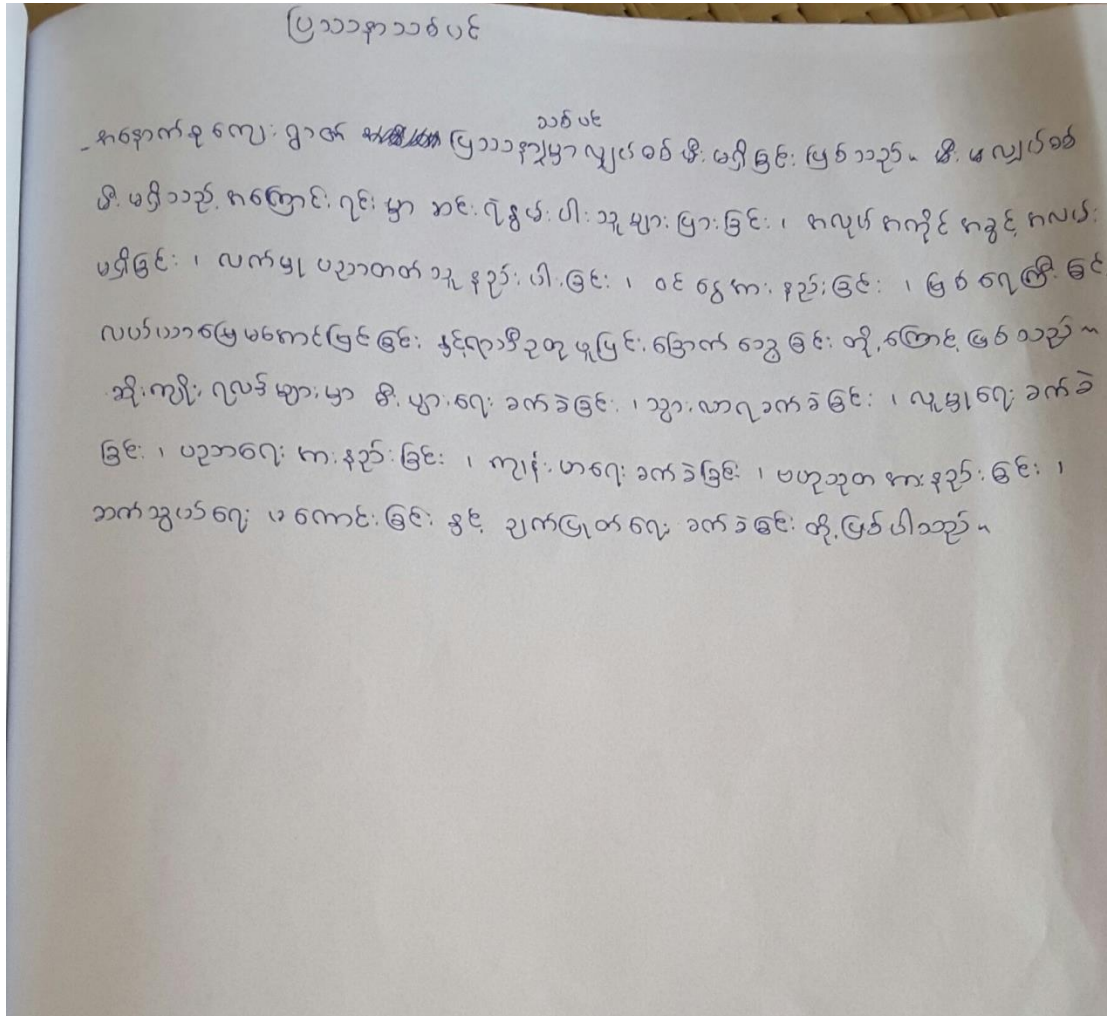 ပြဿနာသစ်ပင်
- အနောက်စုကျေးရွာ၏ ပြဿနာသစ်ပင်မှာ လျှပ်စစ်မီးမရှိခြင်း ဖြစ်သည်။ မီး မလျှပ်စစ်
မီးမရှိသည့် အကြောင်းရင်းမှာ ဆင်းရဲနွမ်းပါးသူများ များပြားခြင်း၊ အလုပ်အကိုင် အခွင့်အလမ်း
မရှိခြင်း၊ လက်မှုပညာတတ်သူ နည်းပါးခြင်း၊ ဝင်ငွေအား နည်းခြင်း၊ မြစ်ရေကြီးခြင်း
လယ်ယာမြေမကောင်ခြင်းခြင်း နှင့်ရာသီဥတု ပူပြင်းခြောက်သွေ့ခြင်း တို့ကြောင့် ဖြစ်သည်။
ဆိုးကျိုး ရလဒ်များမှာ စီးပွားရေး ခက်ခဲခြင်း၊ သွားလာရခက်ခဲခြင်း၊ လူမှုရေး ခက်ခဲ
ခြင်း၊ ပညာရေး အားနည်းခြင်း၊ ကျန်းမာရေး ခက်ခဲခြင်း၊ ဗဟုသုတ အားနည်းခြင်း၊
ဆက်သွယ်ရေး မကောင်းခြင်း နှင့် ချက်ပြုတ်ရေး ခက်ခဲခြင်း တို့ဖြစ်ပါသည်။